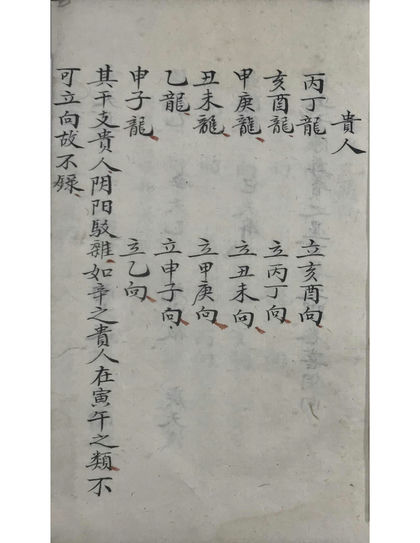 貴人
丙丁龍 立亥酉向
亥酉龍 立丙丁向
甲庚龍 立丑未向
丑未龍 立甲庚向
乙龍 立申子向
申子龍 立乙向
其干支貴人阴阳駁雜如辛之貴人在寅午之類不
可立向故不錄